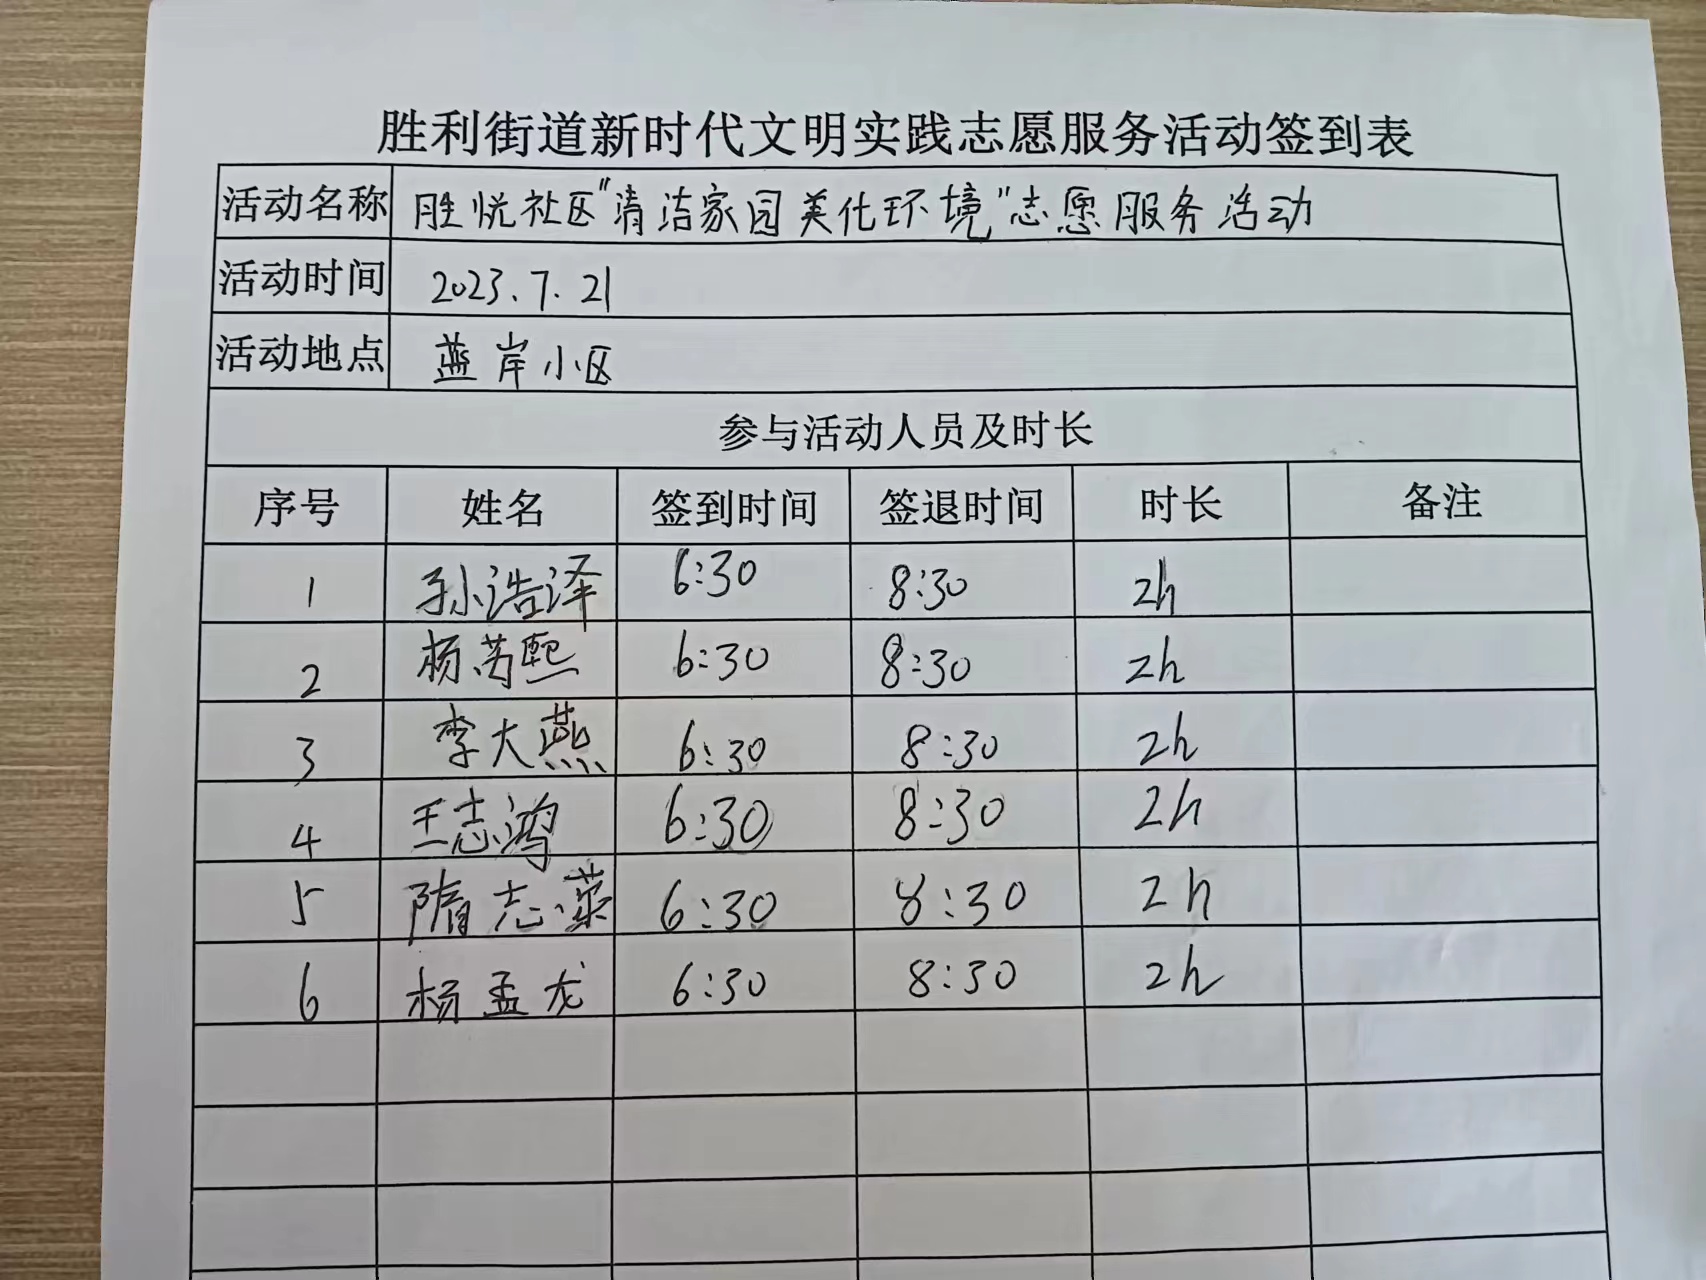 胜利街道新时代文明实践志愿服务活动签到表
活动名称 胜悦社区"清洁家园美化环境"志愿服务活动
活动时间 2023.7.21
活动地点 蓝岸小区
参与活动人员及时长
序号 姓名 签到时间 签退时间 时长 备注
1 孙浩泽 6:30 8:30 2h
2 杨芮熙 6:30 8:30 2h
3 李大燕 6:30 8:30 2h
4 王志鸿 6:30 8:30 2h
5 隋志荣 6:30 8:30 2h
6 杨孟龙 6:30 8:30 2h